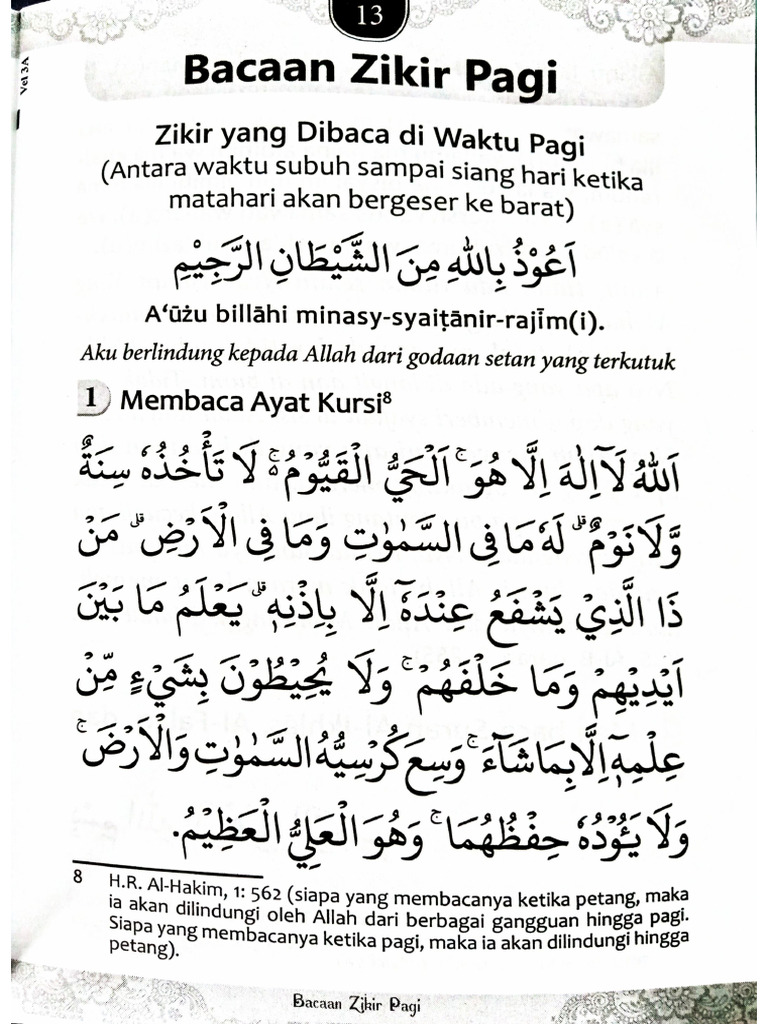 13
Vel 3A
Bacaan Zikir Pagi
Zikir yang Dibaca di Waktu Pagi
(Antara waktu subuh sampai siang hari ketika
matahari akan bergeser ke barat)
اَعُوْذُ بِاللهِ مِنَ الشَّيْطَانِ الرَّجِيْمِ
A‘ūżu billāhi minasy-syaiṭānir-rajīm(i).
Aku berlindung kepada Allah dari godaan setan yang terkutuk
1 Membaca Ayat Kursi⁸
اَللهُ لَآ اِلٰهَ اِلَّا هُوَ ۚ اَلْحَيُّ الْقَيُّوْمُ ەۚ لَا تَأْخُذُهٗ سِنَةٌ
وَّلَا نَوْمٌ ۗ لَهٗ مَا فِى السَّمٰوٰتِ وَمَا فِى الْاَرْضِ ۗ مَنْ
ذَا الَّذِيْ يَشْفَعُ عِنْدَهٗٓ اِلَّا بِاِذْنِهٖ ۗ يَعْلَمُ مَا بَيْنَ
اَيْدِيْهِمْ وَمَا خَلْفَهُمْ ۚ وَلَا يُحِيْطُوْنَ بِشَيْءٍ مِّنْ
عِلْمِهٖٓ اِلَّا بِمَا شَآءَ ۚ وَسِعَ كُرْسِيُّهُ السَّمٰوٰتِ وَالْاَرْضَ ۚ
وَلَا يَـُٔوْدُهٗ حِفْظُهُمَا ۚ وَهُوَ الْعَلِيُّ الْعَظِيْمُ.
8 H.R. Al-Hakim, 1: 562 (siapa yang membacanya ketika petang, maka
ia akan dilindungi oleh Allah dari berbagai gangguan hingga pagi.
Siapa yang membacanya ketika pagi, maka ia akan dilindungi hingga
petang).
Bacaan Zikir Pagi